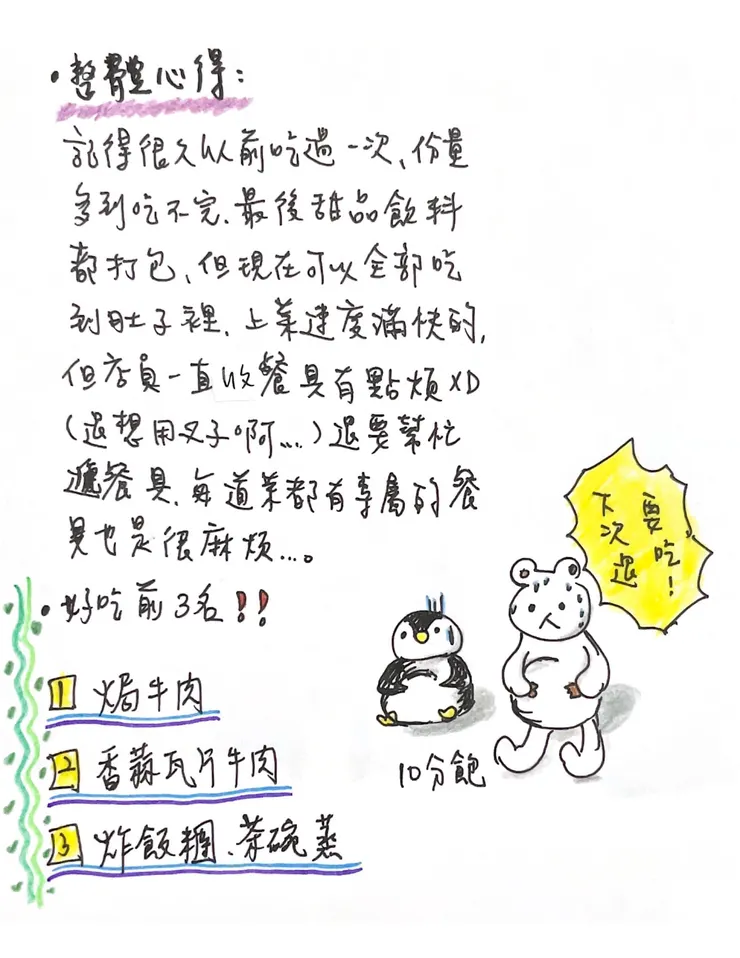 •整體心得:
記得很久以前吃過一次、份量
多到吃不完、最後甜品飲料
都打包、但現在可以全部吃
到肚子裡、上菜速度滿快的,
但店員一直收餐具有點煩XD
(還想用叉子啊...)還要幫忙
遞餐具、每道菜都有專屬的餐
具也是很麻煩...。
•好吃前3名!!
1 焗牛肉
2 香蒜瓦片牛肉
3 炸飯糰、茶碗蒸
下次還
要吃!
10分飽